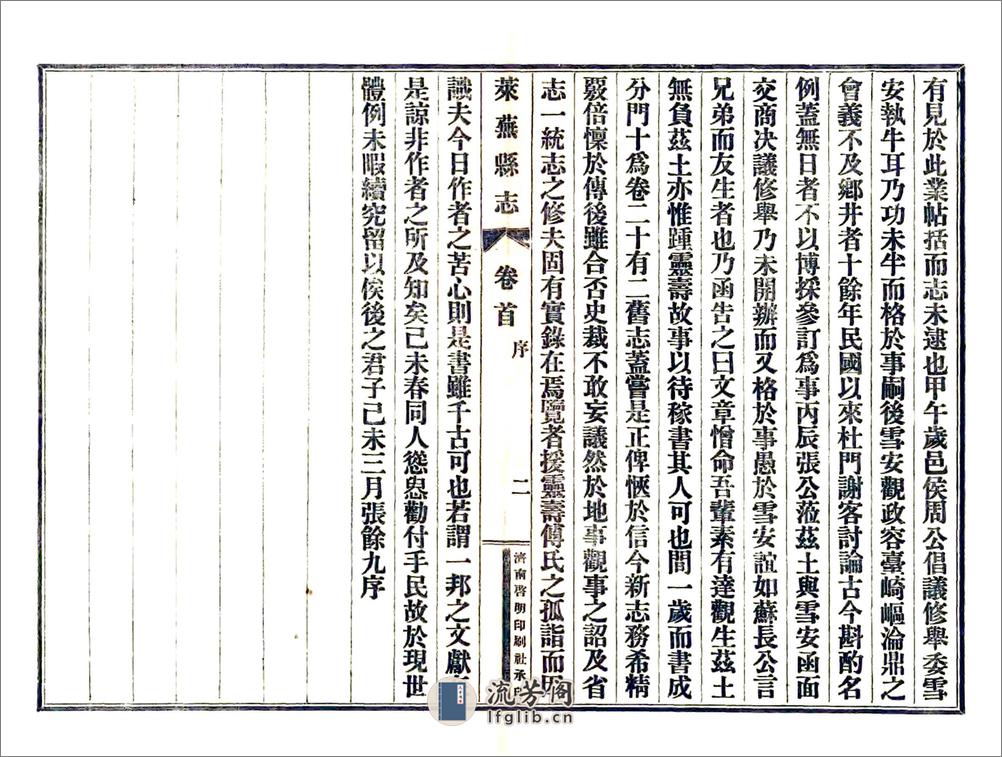 有見於此業帖括而志未逮也甲午歲邑侯周公倡議修舉委雪
安執牛耳乃功未半而格於事嗣後雪安觀政容臺崎嶇淪鼎之
會義不及鄉井者十餘年民國以來杜門謝客討論古今斟酌名
例蓋無日者不以博採參訂爲事丙辰張公蒞茲土與雪安函面
交商决議修舉乃未開辦而又格於事愚於雪安誼如蘇長公言
兄弟而友生者也乃函告之曰文章憎命吾輩素有達觀生茲土
無負茲土亦惟踵靈壽故事以待稼書其人可也間一歲而書成
分門十爲卷二十有二舊志蓋嘗是正俾愜於信今新志務希精
覈倍懍於傳後雖合否史裁不敢妄議然於地事觀事之詔及省
志一統志之修夫固有實錄在焉覽者援靈壽傅氏之孤詣而
萊蕪縣志
卷首
序
二
濟南啓明印刷社承印
識夫今日作者之苦心則是書雖千古可也若謂一邦之文獻
是諒非作者之所及知矣己未春同人慫恿勸付手民故於現世
體例未暇續究留以俟後之君子己未三月張餘九序
流芳閣
lfglib.cn